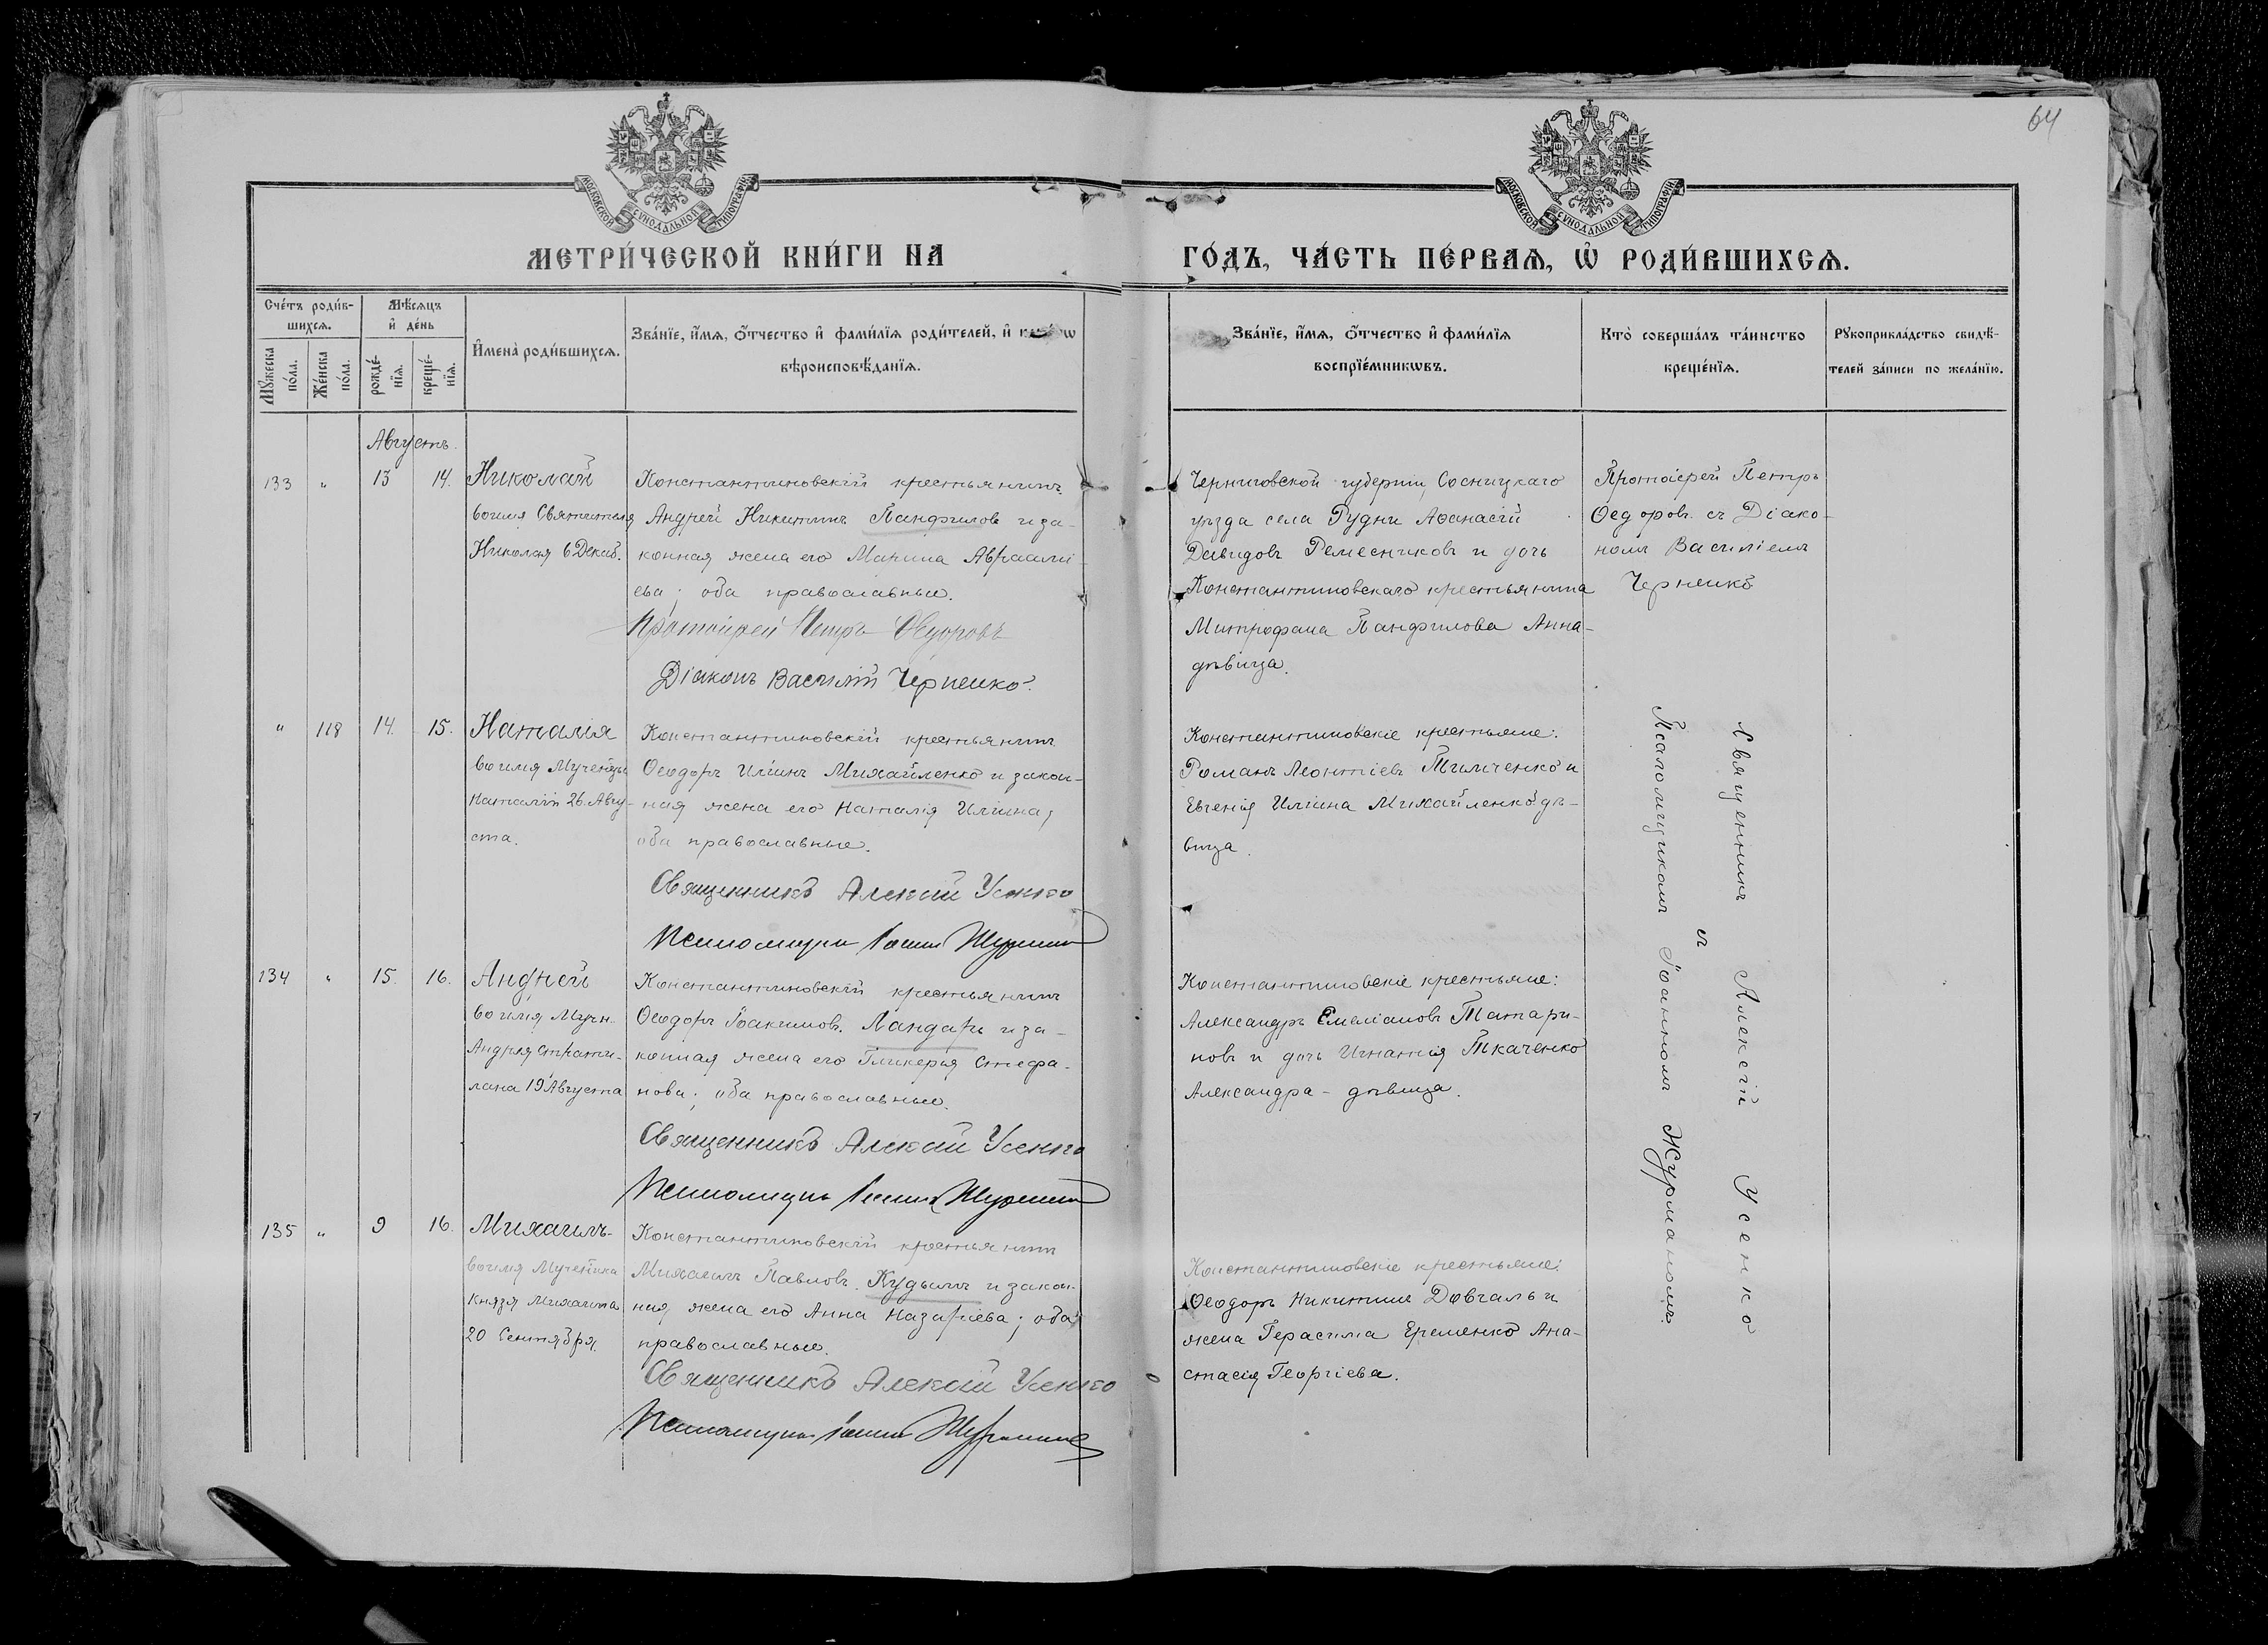 64
МОСКОВСКОЙ СѴНОДАЛЬНОЙ ТИПОГРАФІИ
МОСКОВСКОЙ СѴНОДАЛЬНОЙ ТИПОГРАФІИ
МЕТРИ́ЧЕСКОЙ КНИ́ГИ НА
ГО́ДЪ, ЧА́СТЬ ПЕ́РВАѦ, Ѡ҆ РОДИ́ВШИХСѦ.
Сче́тъ роди́в-
шихсѧ.
Мѣ́сѧцъ
и҆ де́нь
Мꙋ́жеска
по́ла.
Же́нска
по́ла.
рожде́-
нїѧ.
креще́-
нїѧ.
И҆мена̀ роди́вшихсѧ.
Зва́нїе, и҆́мѧ, ѻ҆́тчество и҆ фами́лїѧ роди́телей, и҆
вѣроисповѣ́данїѧ.
Зва́нїе, и҆́мѧ, ѻ҆́тчество и҆ фами́лїѧ
воспрїе́мникѡвъ.
Кто̀ соверша́лъ та́инство
креще́нїѧ.
Рꙋкоприкла́дство свидѣ́-
телей за́писи по жела́нїю.
Августъ.
133 „ 13 14. Николай
во имя Святителя
Николая 6 Декаб.
Константиновскій крестьянинъ
Андрей Никитинъ Панфиловъ и за-
конная жена его Марина Авраамі-
ева; оба православные.
Протоіерей Петръ Ѳедоровъ
Діаконъ Василій Черненко.
Черниговской губерніи, Сосницкаго
уѣзда села Рудни Аѳанасій
Давидовъ Ремесниковъ и дочь
Константиновскаго крестьянина
Митрофана Панфилова Анна-
дѣвица.
Протоіерей Петръ
Ѳедоровъ съ Діако-
номъ Василіемъ
Черненко
„ 118 14. 15. Наталія
во имя Мученицы
Наталіи 26. Авгу-
ста.
Константиновскій крестьянинъ
Ѳеодоръ Иліинъ Михайленко и закон-
ная жена его Наталія Иліина;
оба православные.
Священникъ Алексій Усенко
Псаломщикъ Іоаннъ Журманъ
Константиновскіе крестьяне:
Романъ Леонтіевъ Тимченко и
Евгенія Иліина Михайленко дѣ-
вица.
Священникъ Алексій Усенко
съ
Псаломщикомъ Іоанномъ Журманомъ.
134 „ 15. 16. Андрей
во имя Мучн.
Андрея Страти-
лата 19 Августа
Константиновскій крестьянинъ
Ѳеодоръ Іоакимовъ Ландарь и за-
конная жена его Гликерія Стефа-
нова; оба православные.
Священникъ Алексій Усенко
Псаломщикъ Іоаннъ Журманъ
Константиновскіе крестьяне:
Александръ Емеліановъ Татари-
новъ и дочь Игнатія Ткаченко
Александра - дѣвица.
135 „ 9 16. Михаилъ-
во имя Мученика
Князя Михаила
20 Сентября.
Константиновскій крестьянинъ
Михаилъ Павловъ Кудынъ и закон-
ная жена его Анна Назаріева; оба
православные.
Священникъ Алексій Усенко
Псаломщикъ Іоаннъ Журманъ
Константиновскіе крестьяне:
Ѳеодоръ Никитинъ Довгаль и
жена Герасима Еременко Ана-
стасія Георгіева.